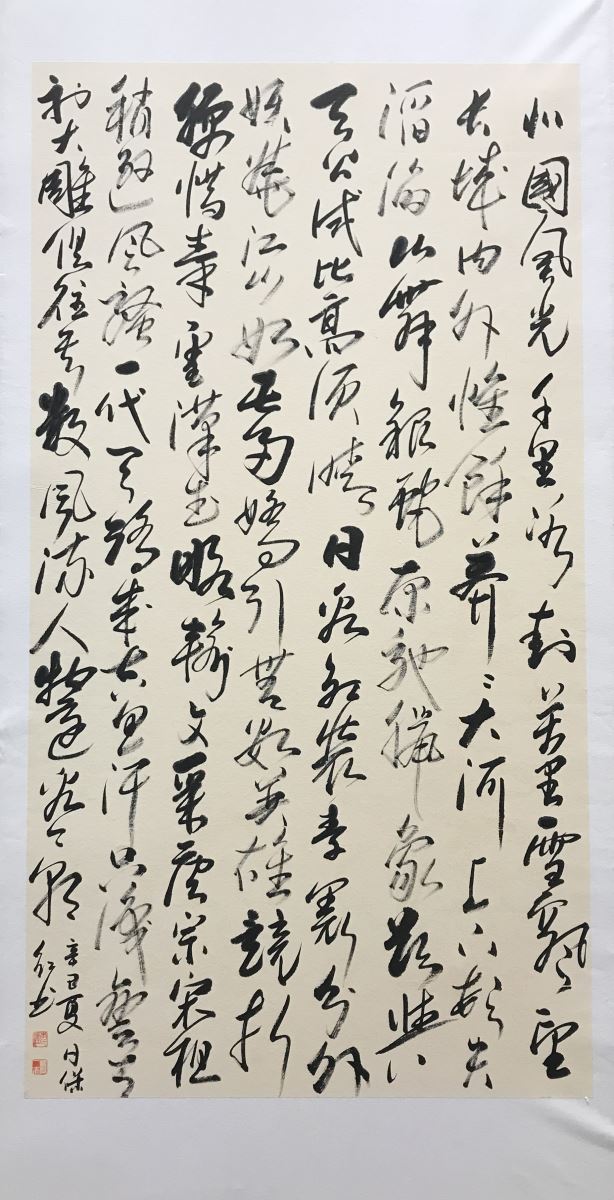 北國風光千里冰封萬里雪飄望
長城内外惟餘莽〻大河上下頓失
滔滔山舞銀蛇原馳臘象欲與
天公試比高須晴日看紅裝素裹分外
妖嬈江山如此多嬌引無數英雄競折
腰惜秦皇漢武略輸文采唐宗宋祖
稍遜風騷一代天驕成吉思汗只識彎弓
射大雕俱往矣數風流人物還看今朝
辛巳夏
书